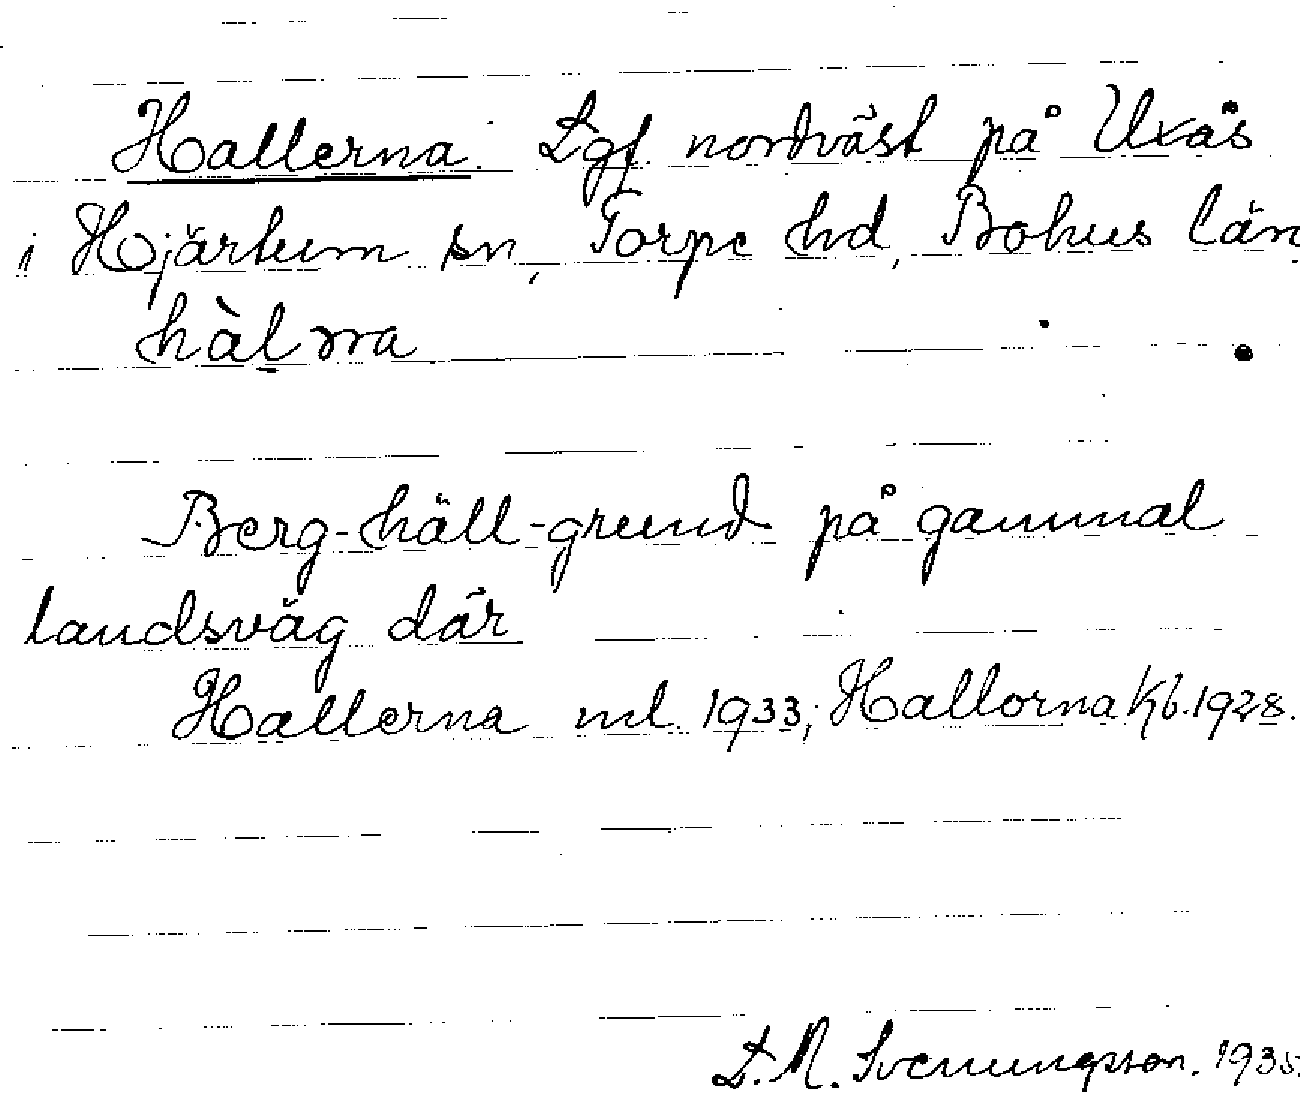 Hallerna. Lgf. nordväst på Uxås
i Hjärtum sn, Torpe hd, Bohus län
hàl rra
Berg-häll-grund på gammal
landsväg där
Hallerna ml. 1933; Hallorna Kb. 1928.
L. M. Svenungsson. 1935.